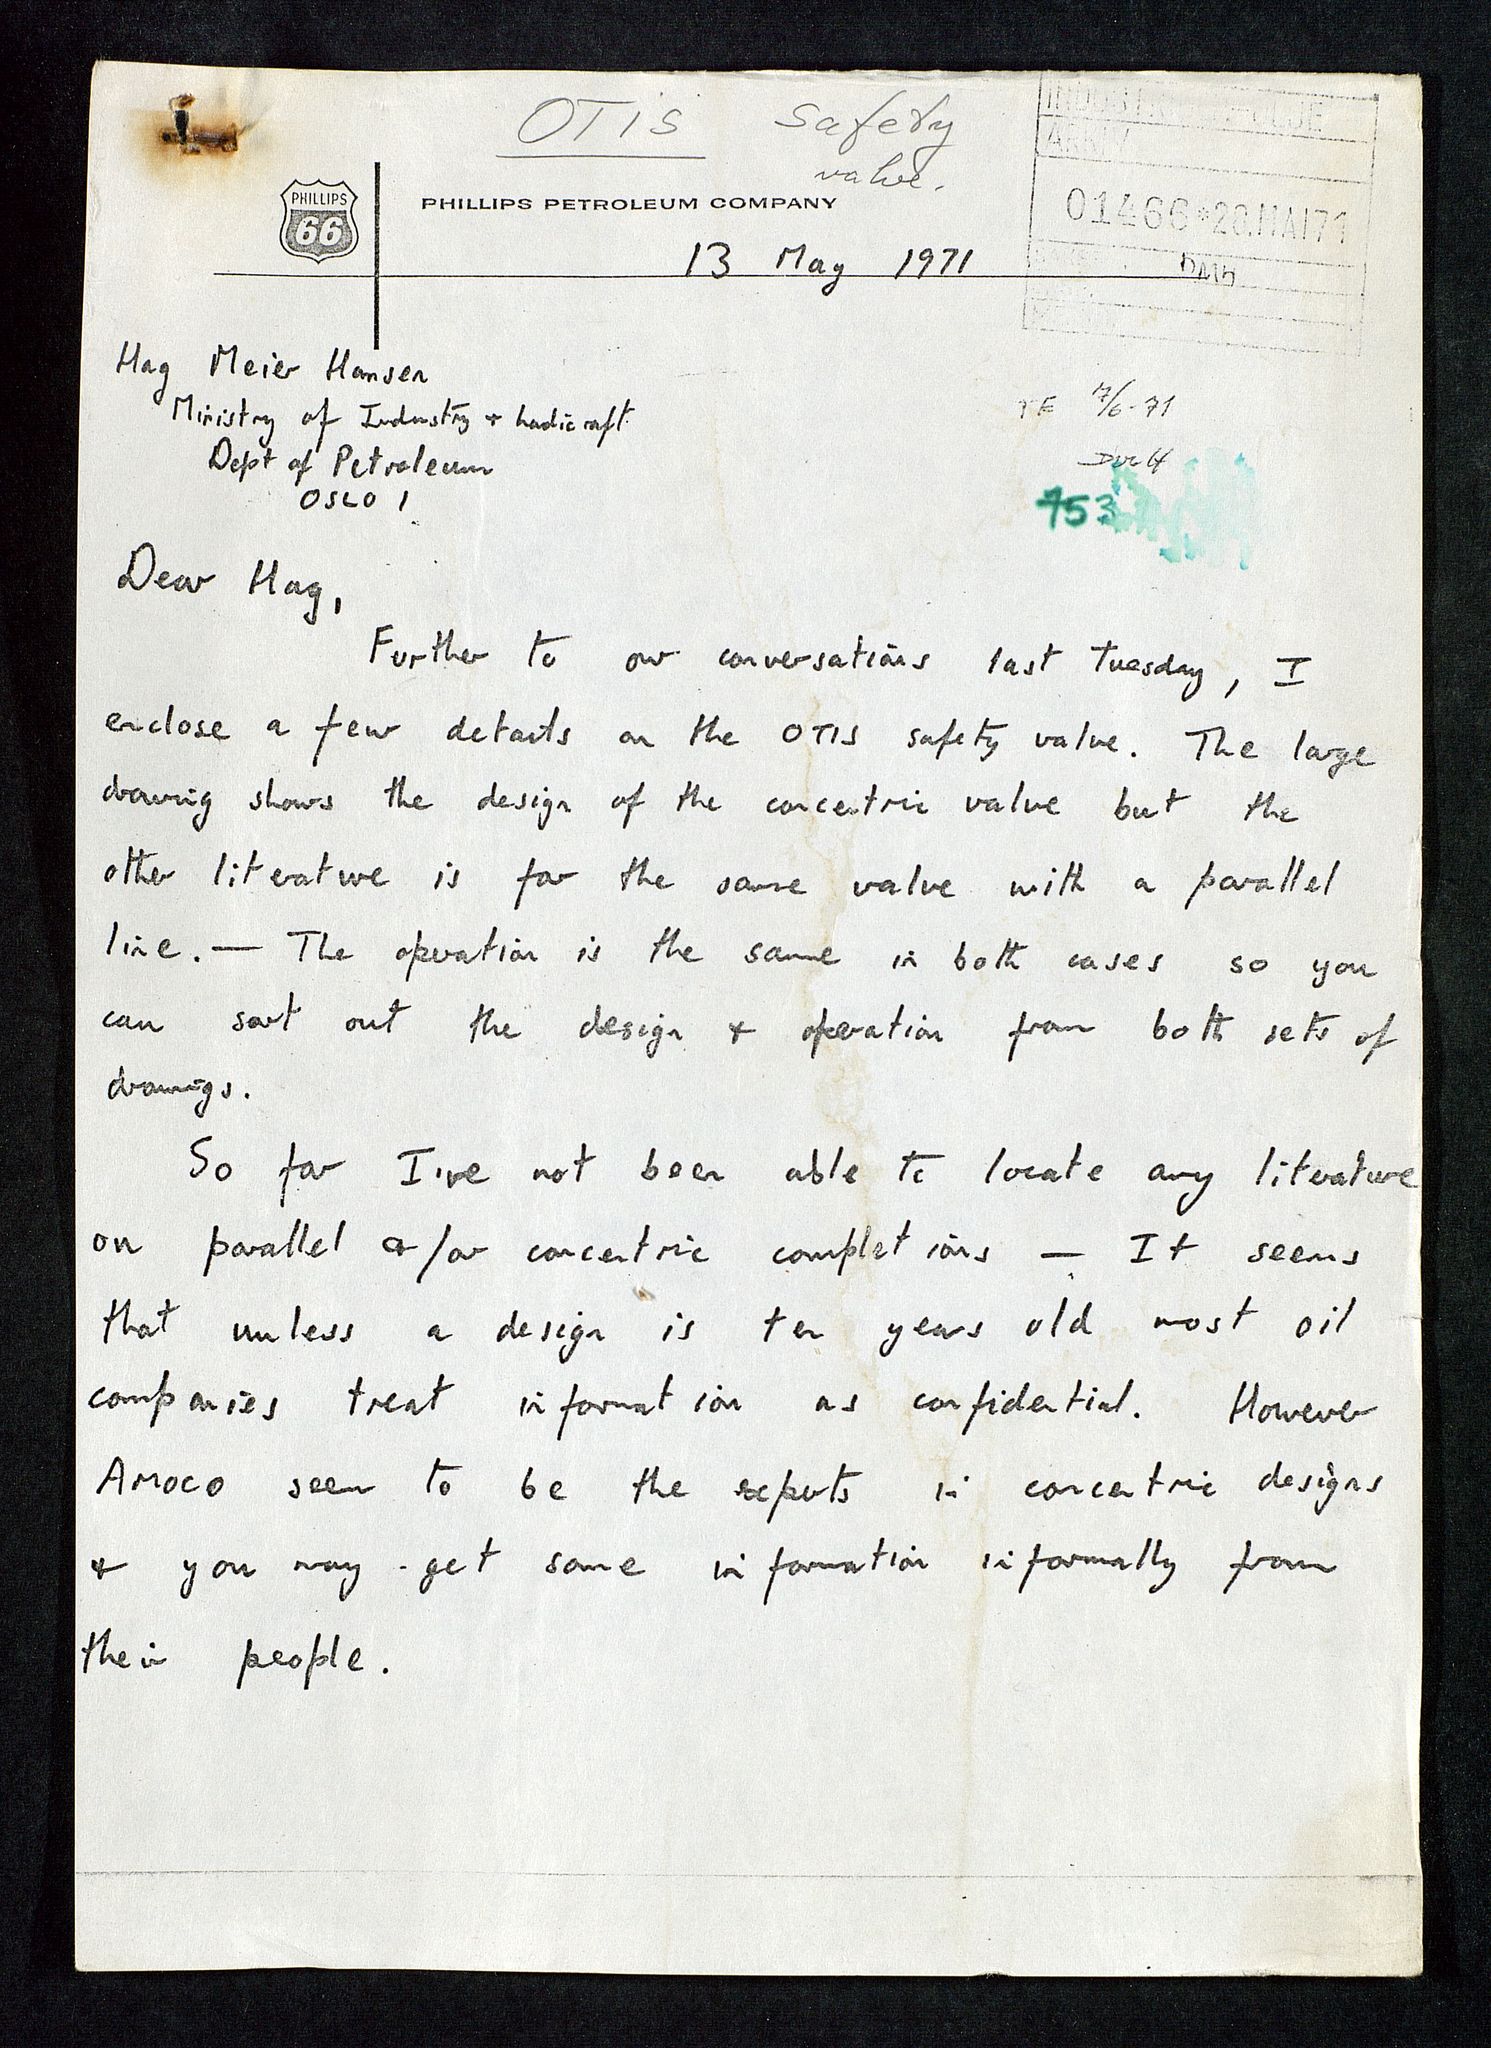 OTIS safety
valve.
INDUSTRI
ARKIV
01466*28.MAI71
PHILLIPS
66
PHILLIPS PETROLEUM COMPANY
13 May 1971
Hag Meier Hansen
Ministry of Industry + hadicraft
Dept of Petroleum
OSLO 1
7/6-71
753
Dear Hag,
Further to our conversations last Tuesday, I
enclose a few details on the OTIS safety valve. The large
drawing shows the design of the concentric valve but the
other literature is for the same valve with a parallel
line. — The operation is the same in both cases so you
can sort out the design + operation from both sets of
drawings.
So far I've not been able to locate any literature
on parallel &/or concentric completions — It seems
that unless a design is ten years old most oil
companies treat information as confidential. However
AMOCO seem to be the experts in concentric designs
+ you may get some information informally from
their people.